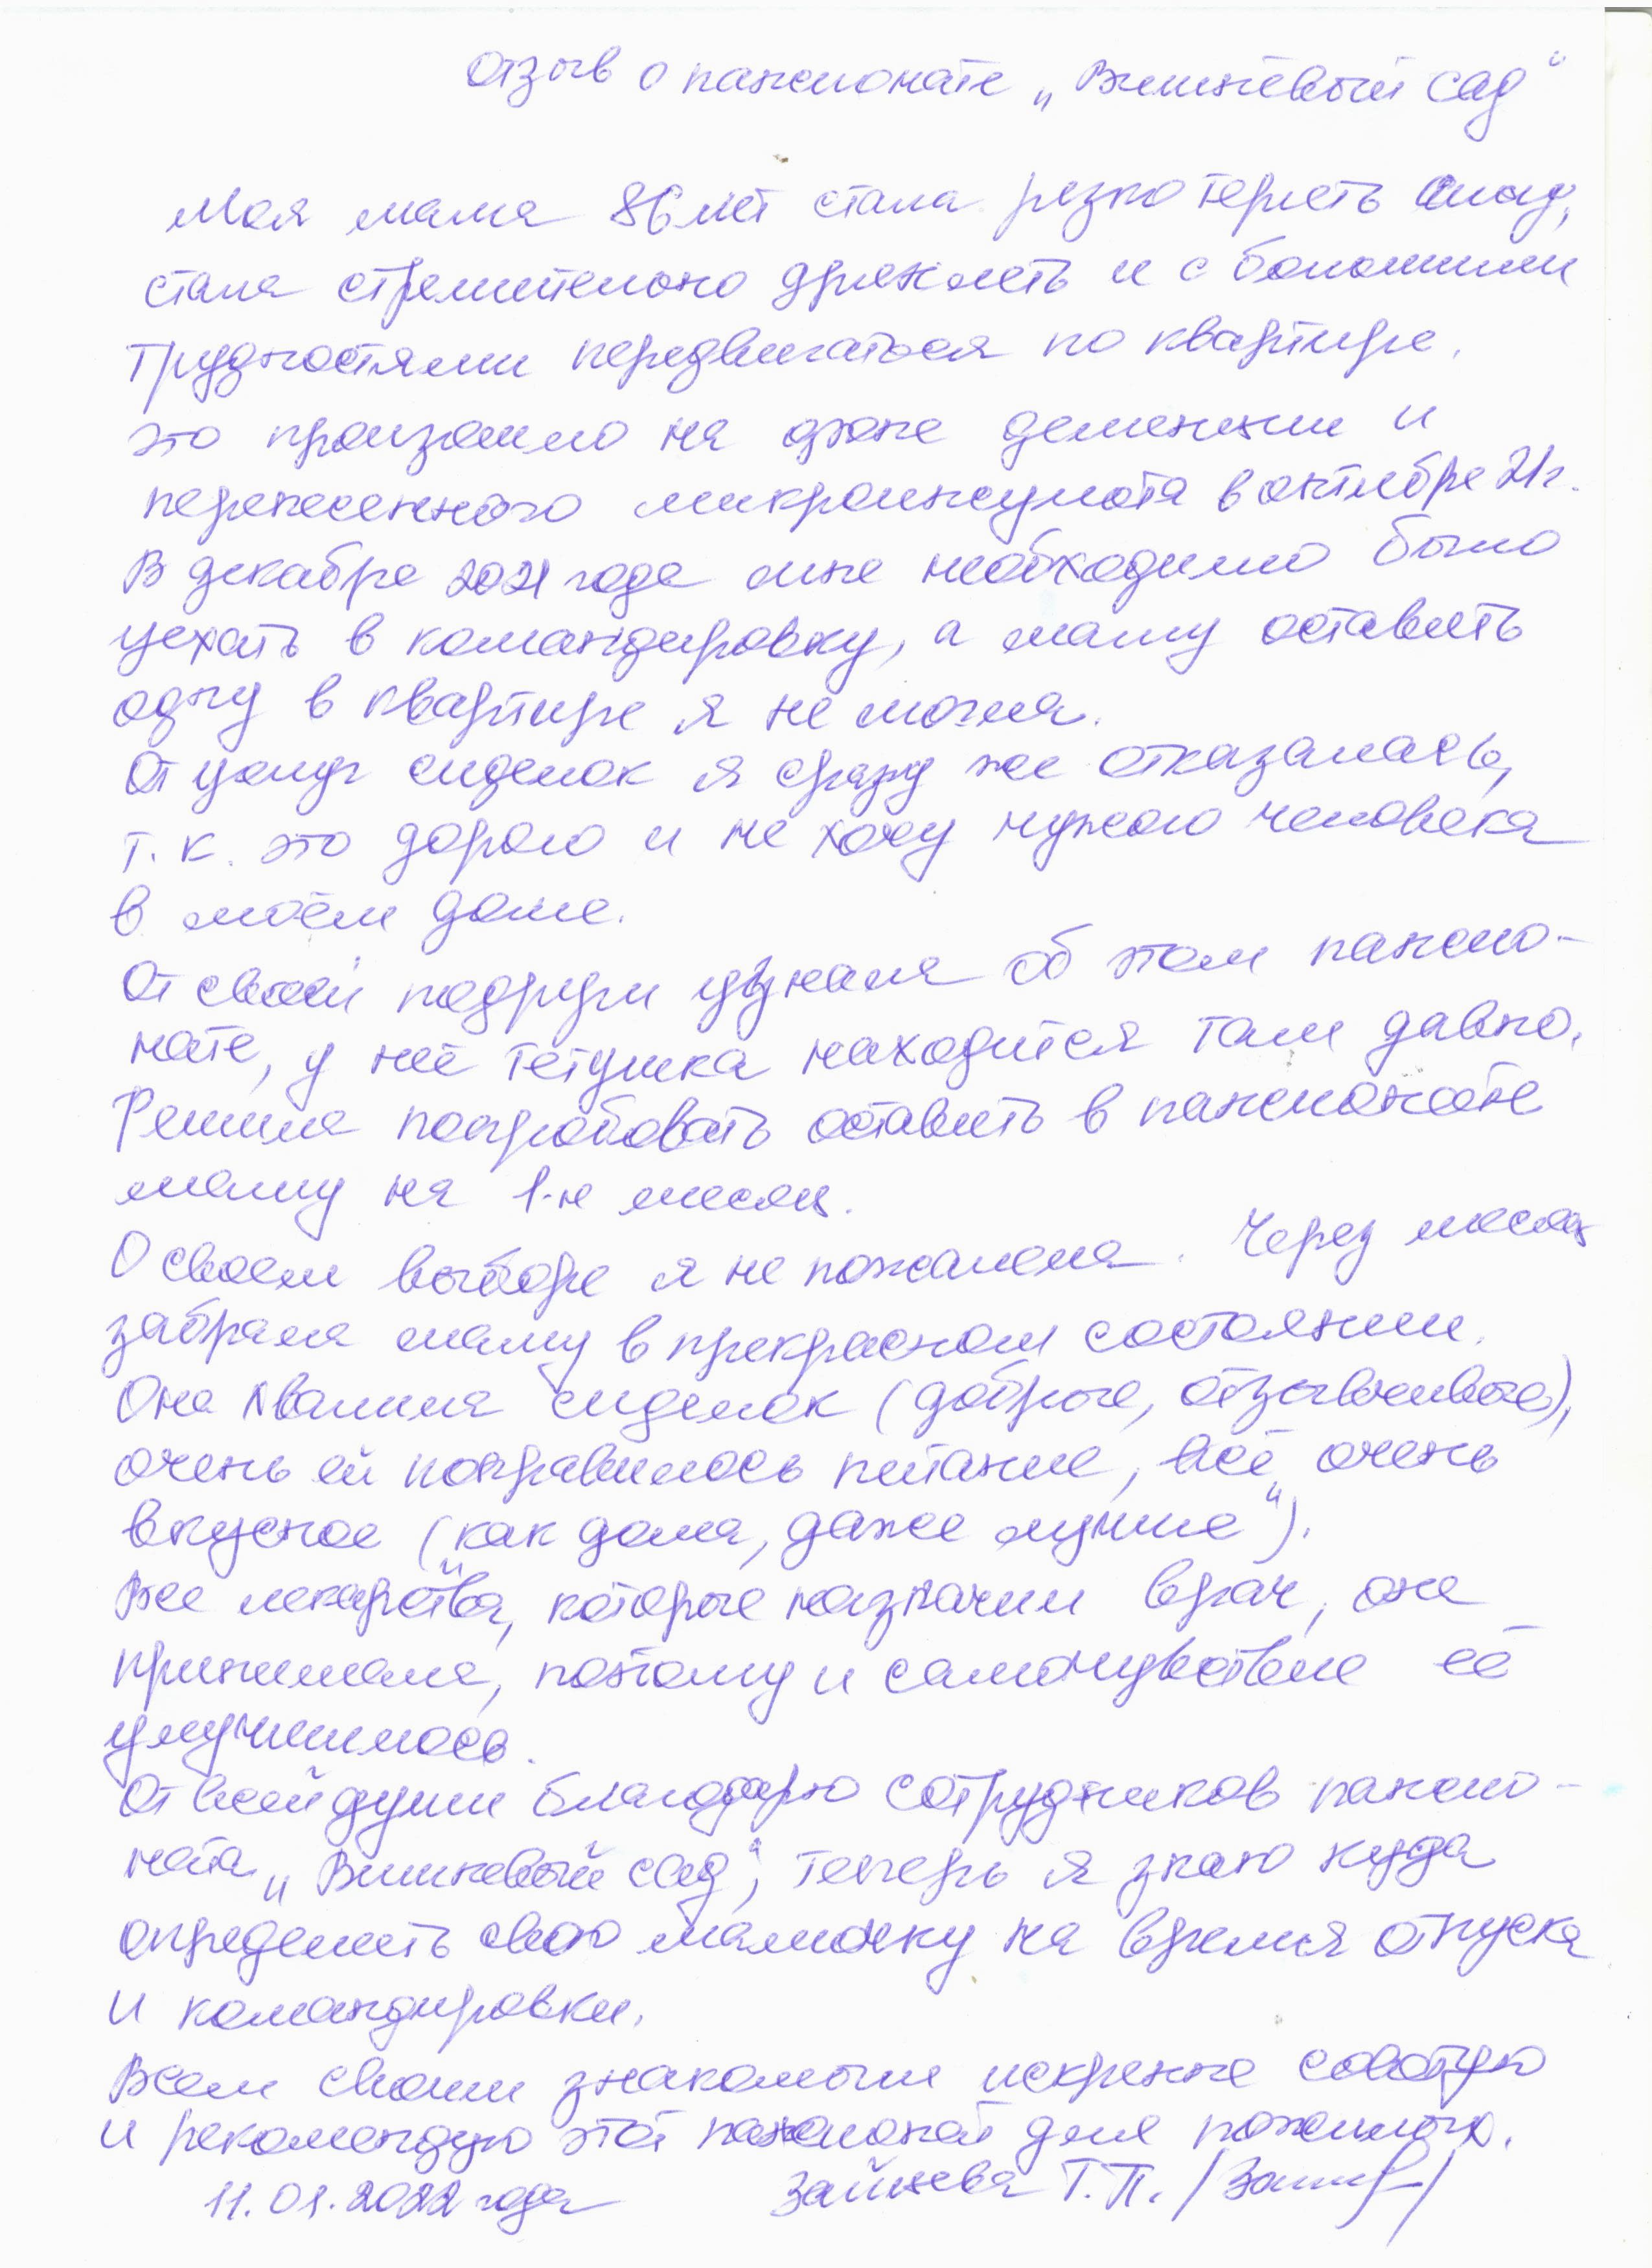 Отзыв о пансионате „Вишнёвый сад“
Моя мама 86 лет стала резко терять силы,
стала стремительно дряхлеть и с большими
трудностями передвигаться по квартире.
Это произошло на фоне деменции и
перенесенного микроинсульта в октябре 21г.
В декабре 2021 года мне необходимо было
уехать в командировку, а маму оставить
одну в квартире я не могла.
От услуг сиделок я сразу же отказалась,
т.к. это дорого и не хочу чужого человека
в моём доме.
От своей подруги узнала об этом пансио-
нате, у неё тётушка находится там давно.
Решила попробовать оставить в пансионате
маму на 1-н месяц.
О своем выборе я не пожалела. Через месяц
забрала маму в прекрасном состоянии.
Она хвалила сиделок (добрые, отзывчивые),
очень ей понравилось питание, всё очень
вкусное („как дома, даже лучше“).
Все лекарства, которые назначил врач, она
принимала, поэтому и самочувствие её
улучшилось.
От всей души благодарю сотрудников пансио-
ната „Вишневый сад“, теперь я знаю куда
определить свою мамочку на время отпуска
и командировки.
Всем своим знакомым искренне советую
и рекомендую этот пансионат для пожилых.
11.01.2022 года Зайцева Т.П. /